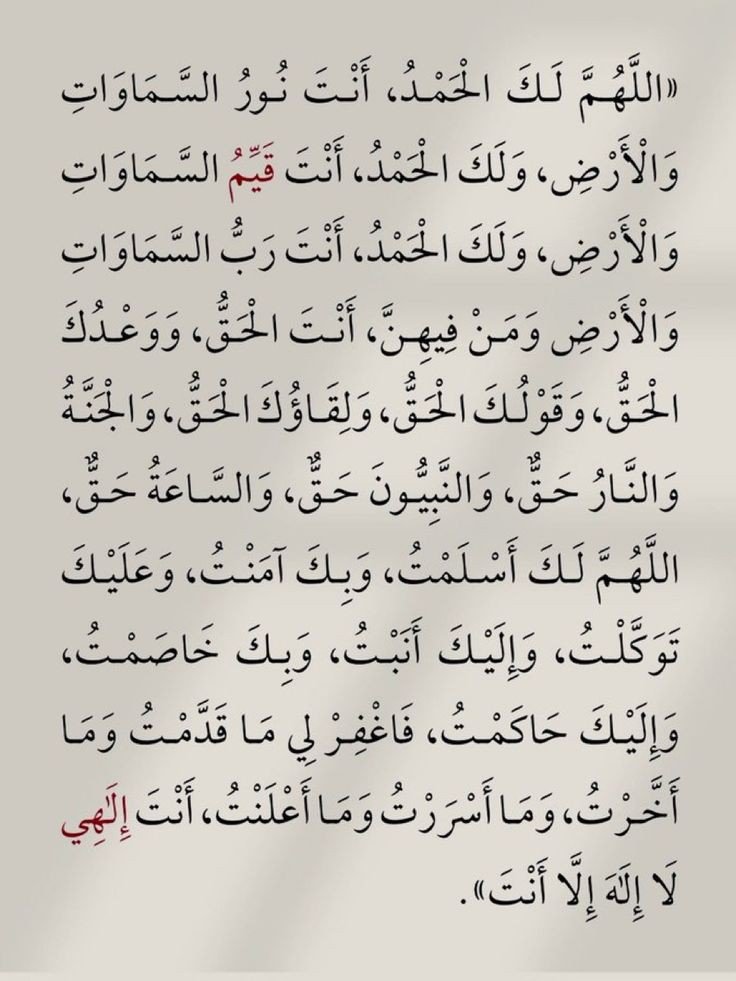 «اللَّهُمَّ لَكَ الْحَمْدُ، أَنْتَ نُورُ السَّمَاوَاتِ
وَالْأَرْضِ، وَلَكَ الْحَمْدُ، أَنْتَ قَيِّمُ السَّمَاوَاتِ
وَالْأَرْضِ، وَلَكَ الْحَمْدُ، أَنْتَ رَبُّ السَّمَاوَاتِ
وَالْأَرْضِ وَمَنْ فِيهِنَّ، أَنْتَ الْحَقُّ، وَوَعْدُكَ
الْحَقُّ، وَقَوْلُكَ الْحَقُّ، وَلِقَاؤُكَ الْحَقُّ، وَالْجَنَّةُ
وَالنَّارُ حَقٌّ، وَالنَّبِيُّونَ حَقٌّ، وَالسَّاعَةُ حَقٌّ،
اللَّهُمَّ لَكَ أَسْلَمْتُ، وَبِكَ آمَنْتُ، وَعَلَيْكَ
تَوَكَّلْتُ، وَإِلَيْكَ أَنَبْتُ، وَبِكَ خَاصَمْتُ،
وَإِلَيْكَ حَاكَمْتُ، فَاغْفِرْ لِي مَا قَدَّمْتُ وَمَا
أَخَّرْتُ، وَمَا أَسْرَرْتُ وَمَا أَعْلَنْتُ، أَنْتَ إِلَٰهِي
لَا إِلَٰهَ إِلَّا أَنْتَ».